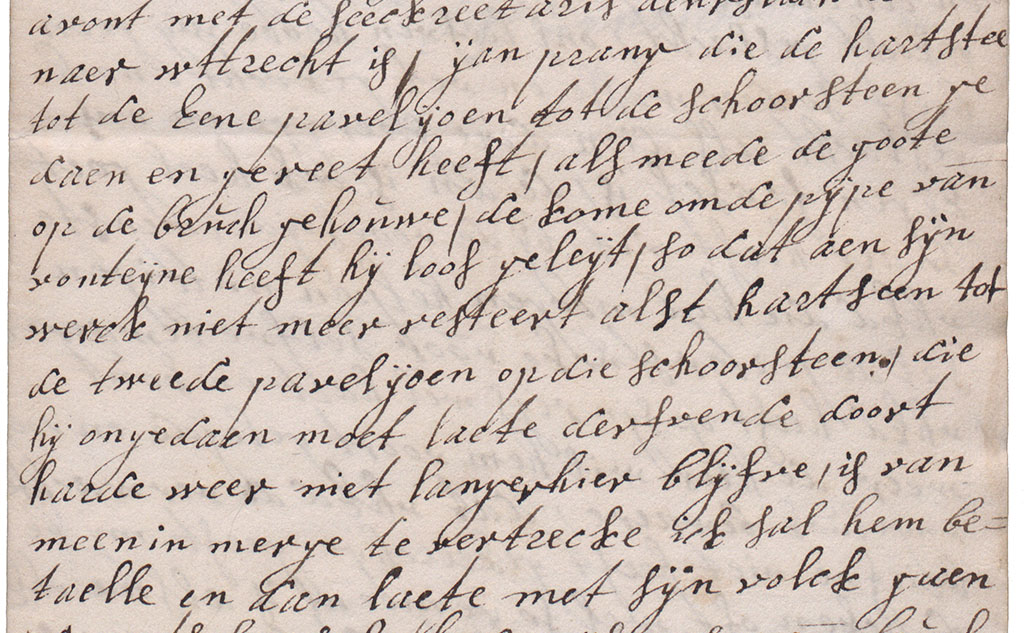 avont met de seeckreetaris
naer wttrecht is / ijan prang die de hartstee
tot de Eene pavelijoen tot de schoorsteen ge
daen en gereet heeft / als meede de goote
op de bruch gehouwe / de kome omde pijpe van
vonteijne heeft hij loos geleijt / so dat aen sijn
werck niet meer resteert alst hartseen tot
de tweede pavelijoen op die schoorsteen / die
hij ongedaen moet laete derfrende doort
harde weer niet langer hier blijfve / is van
meenin merge te vertrecke ick sal hem be=
taelle en dan laete met sijn volck gaen